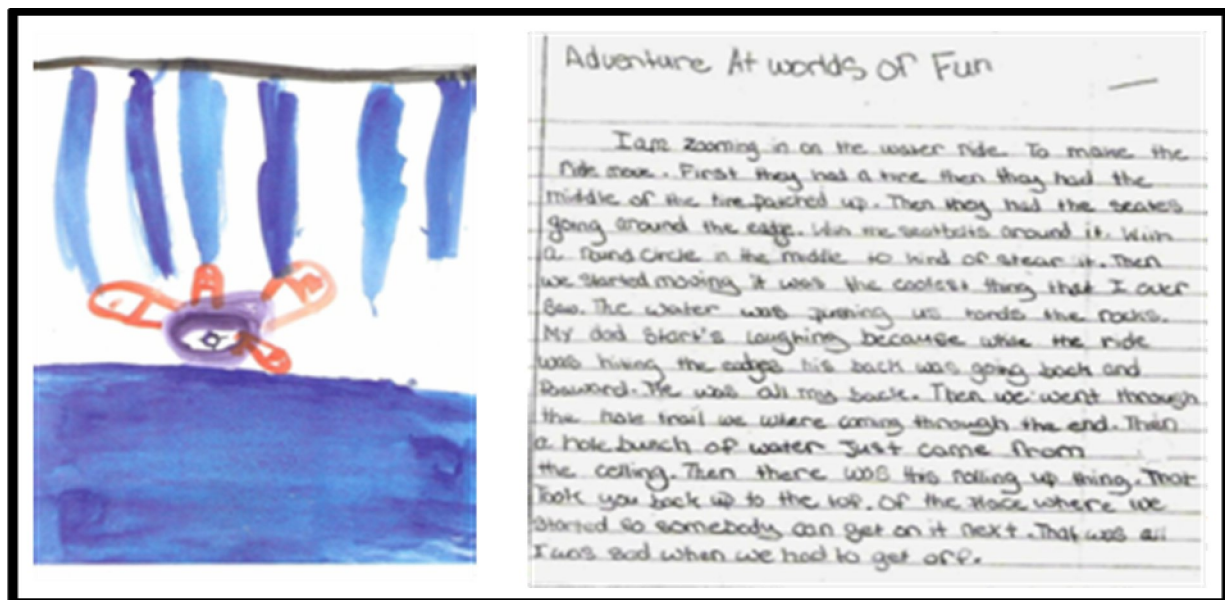 Adventure At worlds of Fun
I am zooming in on the water ride. To make the
ride move. First they had a tire then they had the
middle of the tire patched up. Then they had the seates
going around the eadge. With the seatbelts around it. With
a round circle in the middle to kind of stear it. Then
we started moving it was the coolest thing that I ever
saw. The water was pushing us tords the rocks.
My dad start's laughing because while the ride
was hiting the eadges his back was going back and
forward. He was all my back. Then we went through
the hole trail we where coming through the end. Then
a hole bunch of water just came from
the celling. Then there was this rolling up thing. That
Took you back up to the top. Of the place where we
started so somebody can get on it next. That was all
I was sad when we had to get off.